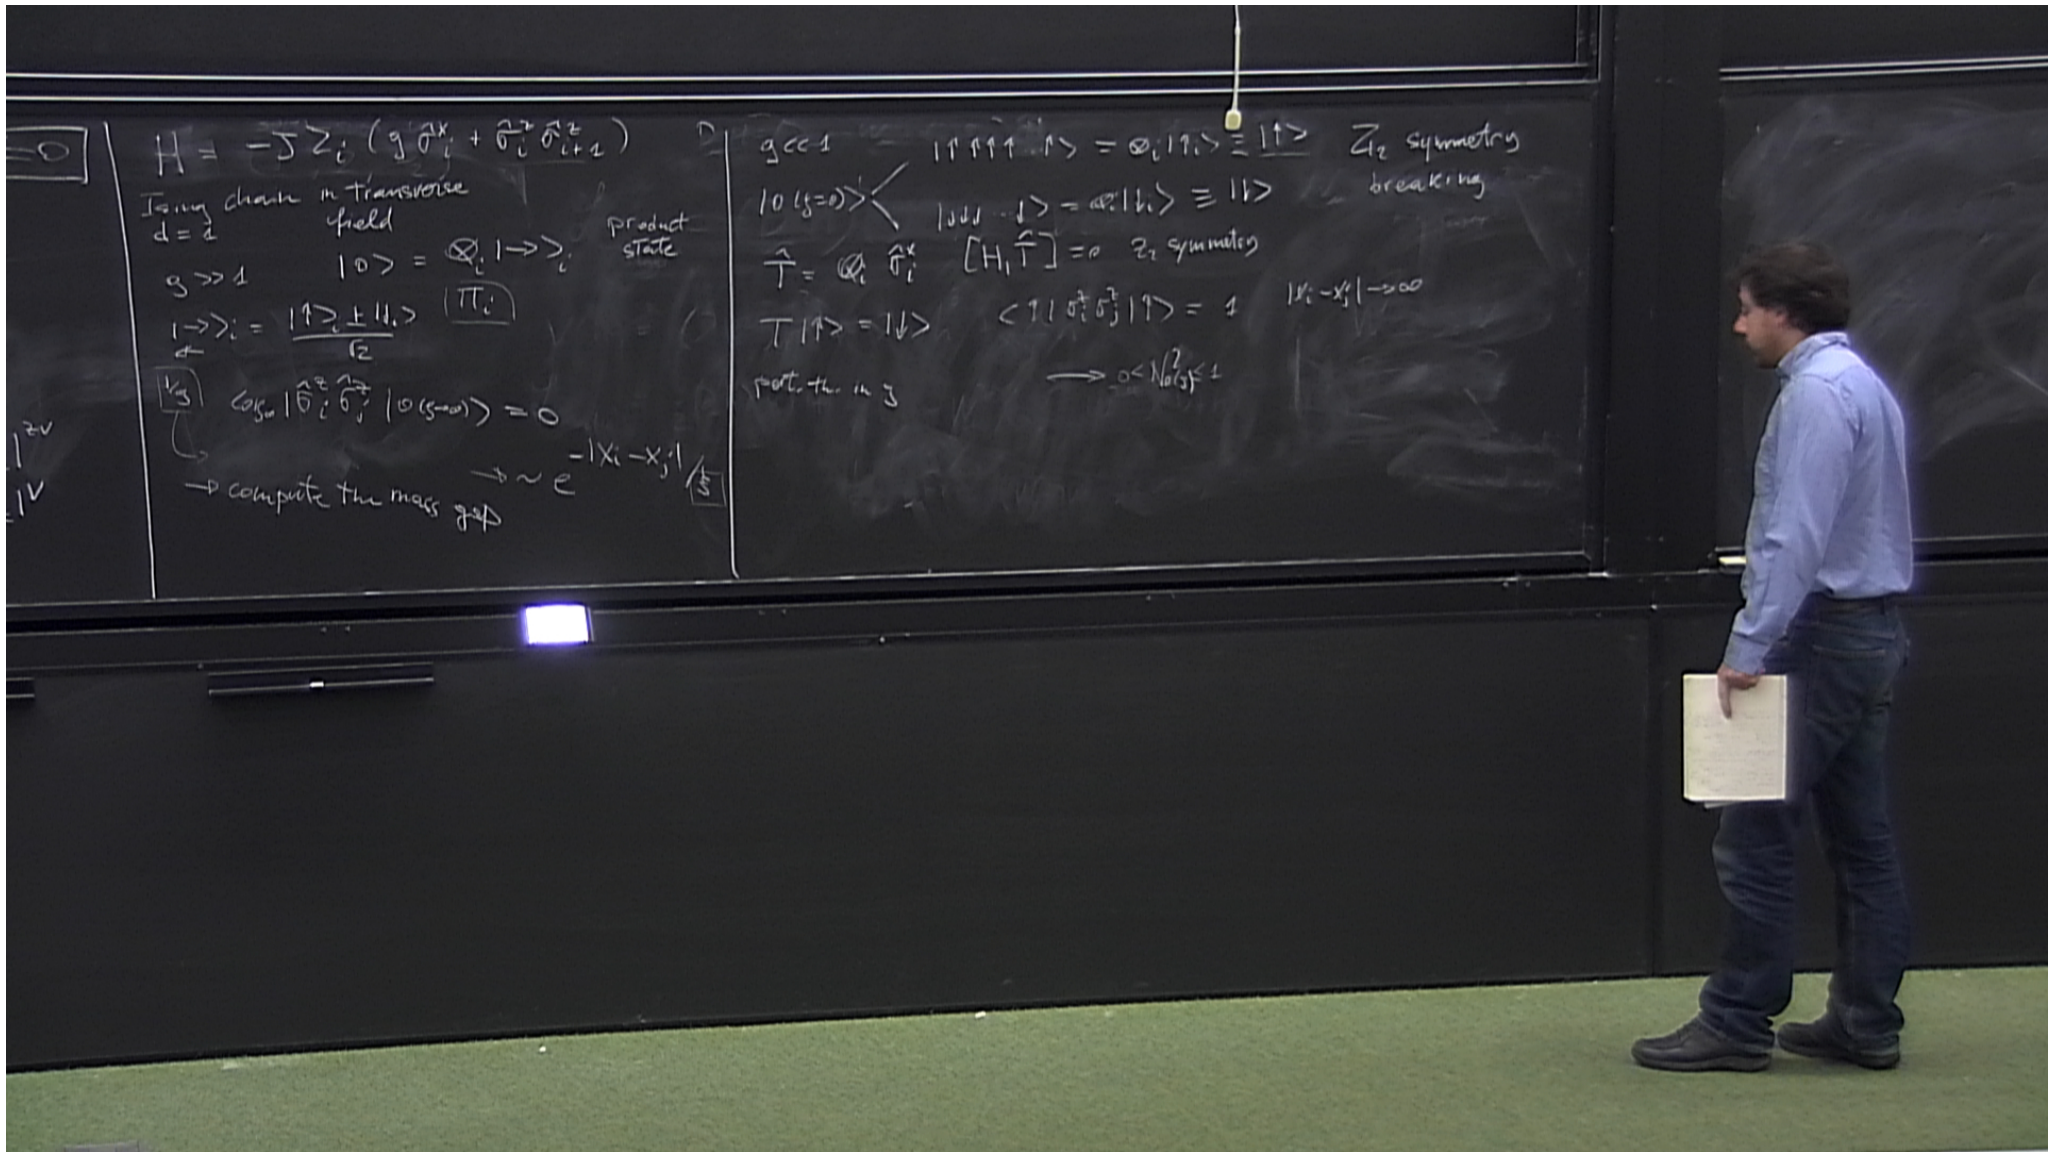 =0
|^{zν}
|^ν
H = -J Σ_i (g σ̂^x_i + σ̂^z_i σ̂^z_{i+1})
Ising chain in transverse
d = 1 field
g >> 1 |0> = ⊗_i |→>_i product
state
|→>_i = (|↑>_i ± |↓>_i)/√2 |Π_i
←
1/g
<0| σ̂^z_i σ̂^z_j |0 (g→∞)> = 0
→ ~ e^{-|x_i - x_j|/ξ}
→ compute the mass gap
g << 1 |↑↑↑↑ ..↑> = ⊗_i |↑_i> ≡ |↑> Z_2 symmetry
breaking
|0 (g=0)> < |↓↓↓ ..↓> = ⊗_i |↓_i> ≡ |↓>
T̂ = ⊗_i σ̂^x_i [H, T̂] = 0 Z_2 symmetry
T |↑> = |↓> <↑| σ^z_i σ^z_j |↑> = 1 |x_i - x_j| → ∞
pert. th. in g ⟶ 0 < N_0^2(g) < 1